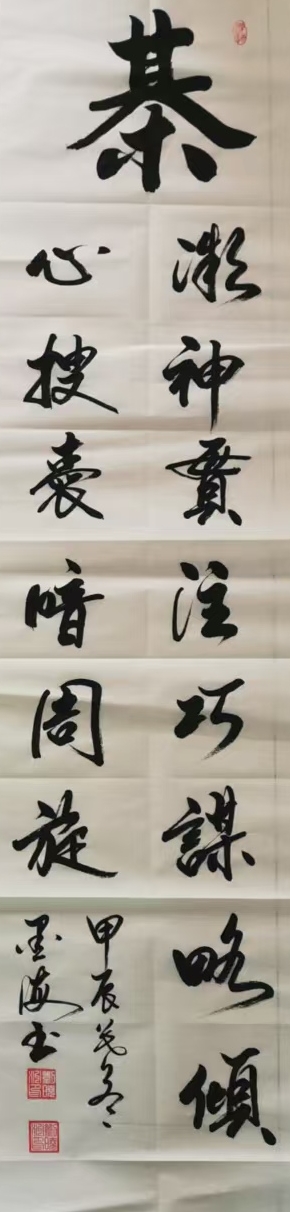 棊
凝神貫注巧謀略傾
心搜囊暗周旋
甲辰
墨海书